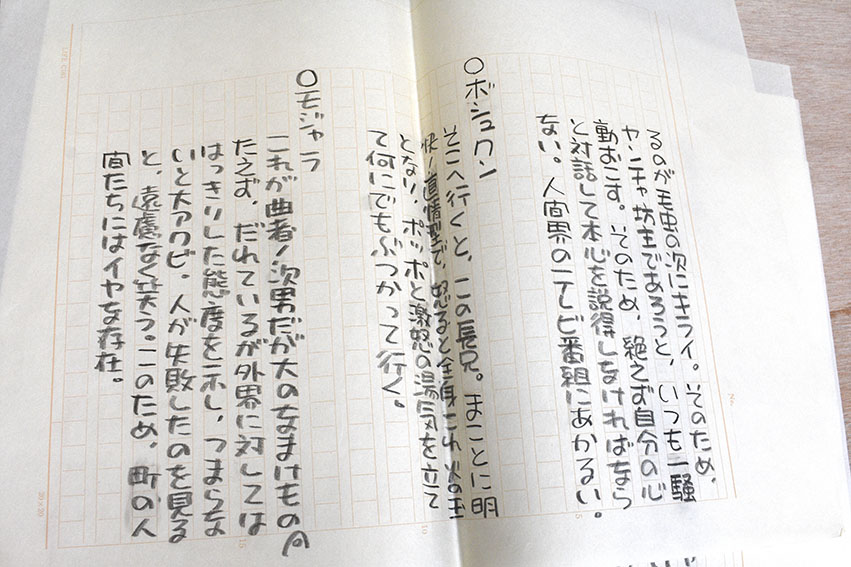 るのが毛虫の次にキライ。そのため、
ヤンチャ坊主であろうと、いつも一騒
動おこす。そのため、絶えず自分の心
と対話して本心を説得しなければなら
ない。人間界のテレビ番組にあかるい。
○ボシュクン
そこへ行くと、この長兄。まことに明
快!直情型で、怒ると全身これ火の玉
となり、ポッポと激怒の湯気を立て
て何にでもぶつかって行く。
○モジャラ
これが曲者!次男だが大のなまけもの
たえず、だれているが外界に対しては
はっきりした態度を示し、つまらな
いと大アクビ。人が失敗したのを見る
と、遠慮なく笑う。このため、町の人
間たちにはイヤな存在。
5
10
15
20×20